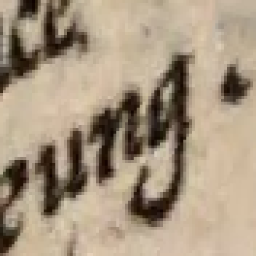 ce
eung.